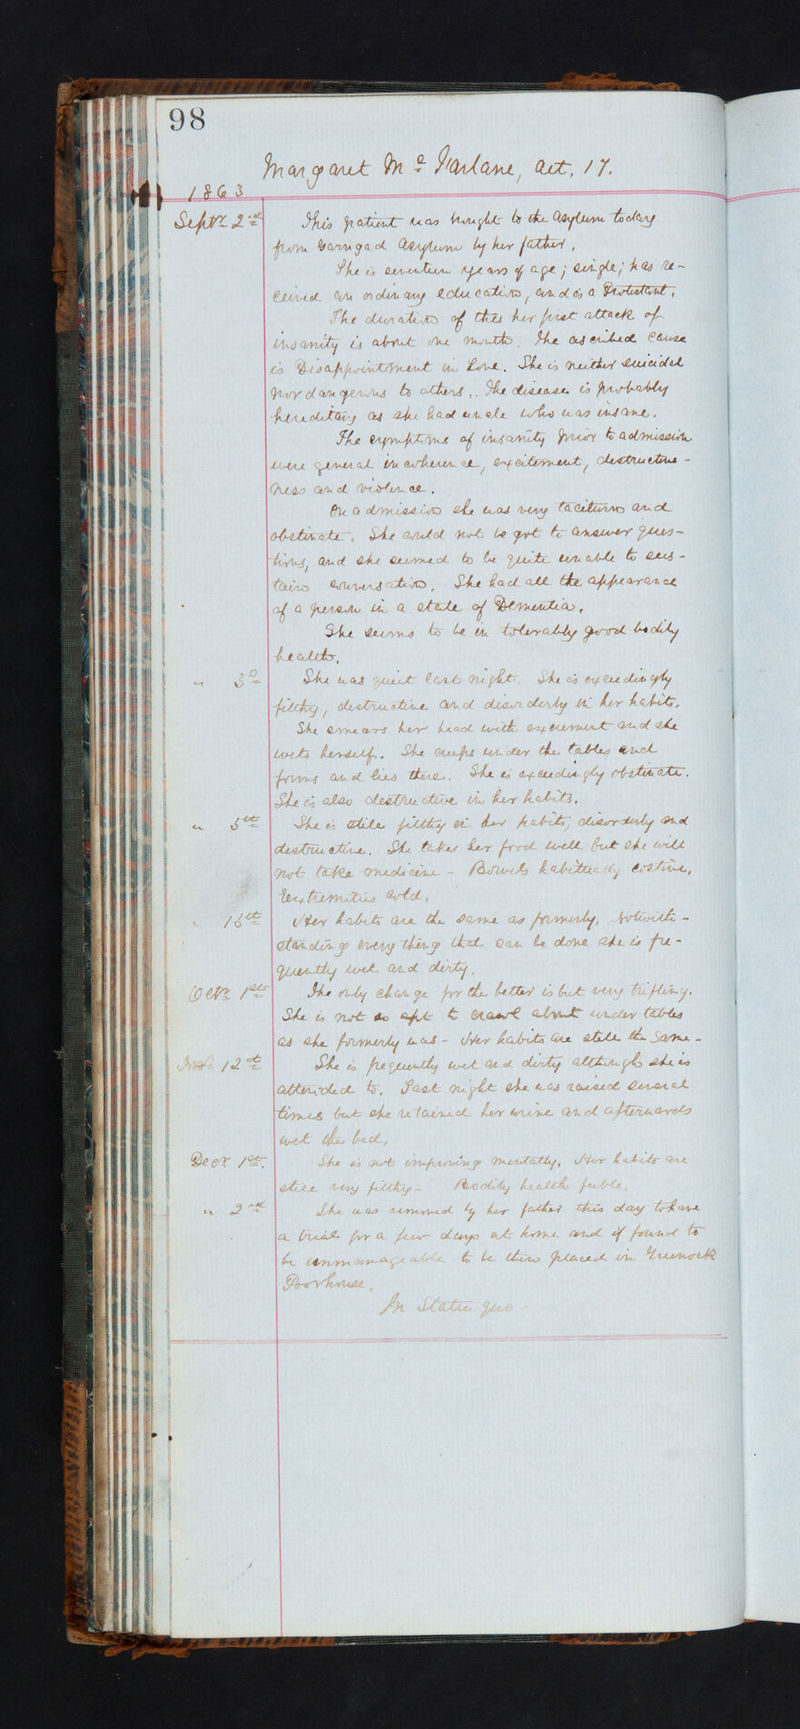 98
Margaret Mc Farlane, aet. 17.
1863
Septr 2nd This patient was brought to the Asylum today
from Garngad Asylum by her father.
She is seventeen years of age; single; has re-
ceived an ordinary education, and is a Protestant.
The duration of this her first attack of
insanity is about one month. The ascribed cause
is Disappointment in Love. She is neither suicidal
nor dangerous to others. The disease is probably
hereditary as she had uncle who was insane.
The symptoms of insanity prior to admission
were general incoherence, excitement, destructive-
ness and violence.
On admission she was very taciturn and
obstinate. She could not be got to answer ques-
tions, and she seemed to be quite unable to sus-
tain conversation. She had all the appearance
of a person in a state of Dementia.
She seems to be in tolerably good bodily
health.
" 3d She was quiet last night. She is exceedingly
filthy, destructive and disorderly in her habits.
She smears her head with excrement and she
wets herself. She creeps under the tables and
forms and lies there. She is exceedingly obstinate.
She is also destructive in her habits.
" 5th She is still filthy in her habits, disorderly and
destructive. She takes her food well but she will
not take medicine - Bowels habitually costive,
Extremities cold.
" 15th Her habits are the same as formerly. Notwith-
standing every thing that can be done she is fre-
quently wet and dirty.
Octr 1st The only change for the better is but very trifling.
She is not so apt to crawl about under tables
as she formerly was - Her habits are still the same -
12th She is frequently wet and dirty although she is
attended to. Last night she was raised several
times but she retained her urine and afterwards
wet the bed.
Decr 1st. She is not improving mentally. Her habits are
still very filthy - Bodily health feeble.
" 2nd She was removed by her father this day to have
a trial for a few days at home and if found to
be unmanageable to be then placed in Greenock
Poorhouse.
In Statu quo -